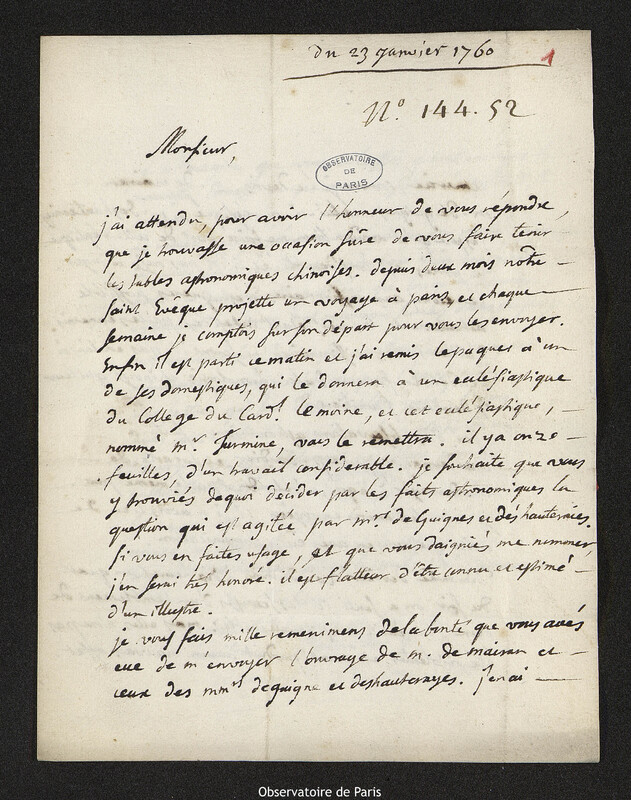 du 23 Janvier 1760
1
N.º 144. 52
Monsieur,
OBSERVATOIRE
DE
PARIS
j'ai attendu, pour avoir l'honneur de vous répondre,
que je trouvasse une occasion sûre de vous faire tenir
les tables astronomiques chinoises. depuis deux mois notre
saint Evêque projette un voyage à paris, et chaque
semaine je comptois sur son départ pour vous les envoyer.
Enfin il est parti ce matin et j'ai remis le paquet à un
de ses domestiques, qui le donnera à un ecclésiastique
du College du Card.l le moine, et cet ecclésiastique,
nommé mr. Turmine, vous le remettra. il y a onze
feuilles, d'un travail considerable. je souhaite que vous
y trouviés de quoi décider par les faits astronomiques la
question qui est agitée par mrs de Guignes et deshauteraies.
si vous en faites usage, et que vous daigniés me nommer,
j'en serai très honoré. il est flatteur d'être connu et estimé
d'un illustre.
je vous fais mille remercimens de la bonté que vous avés
eue de m'envoyer l'ouvrage de m. de mairan et
ceux des mmrs deguigne et deshauterayes. J'en ai
Observatoire de Paris